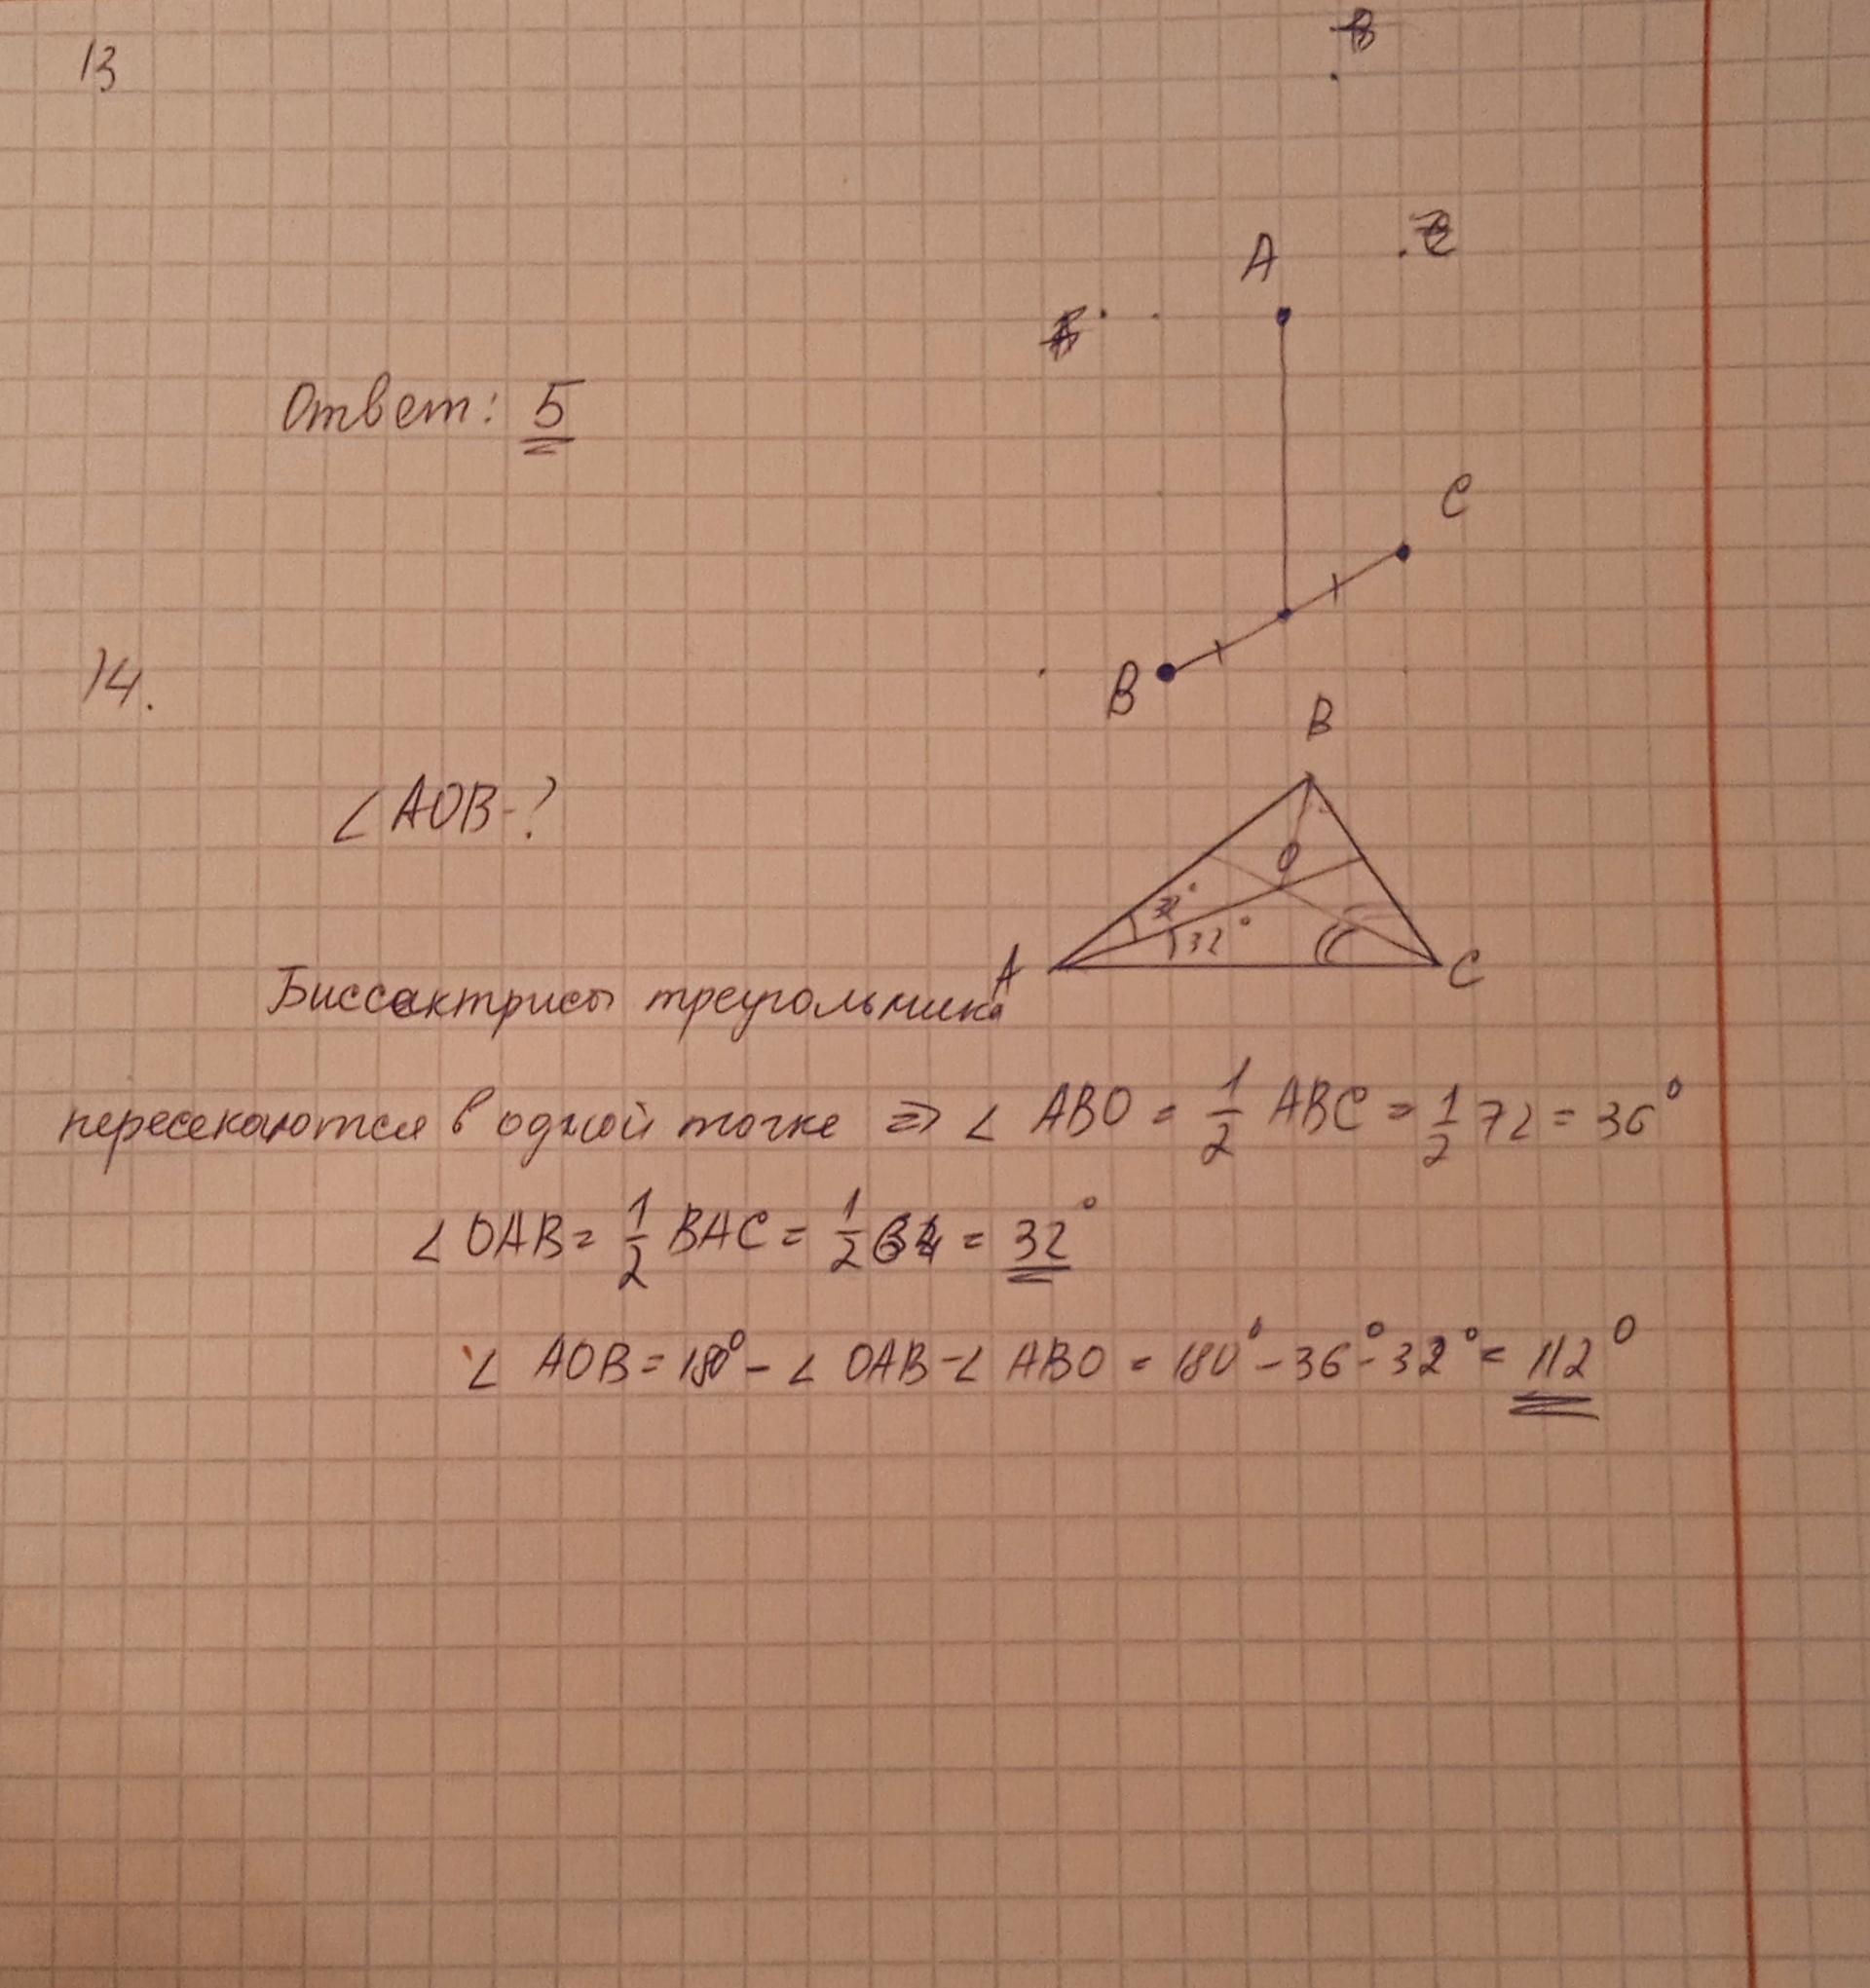 13
A
Ответ: 5
C
B
14.
B
∠ AOB-?
O
32°
32°
A
C
Биссектрисы треугольника
пересекаются в одной точке => ∠ ABO = 1/2 ABC = 1/2 72 = 36°
∠ OAB = 1/2 BAC = 1/2 64 = 32°
∠ AOB = 180° - ∠ OAB - ∠ ABO = 180° - 36° - 32° = 112°